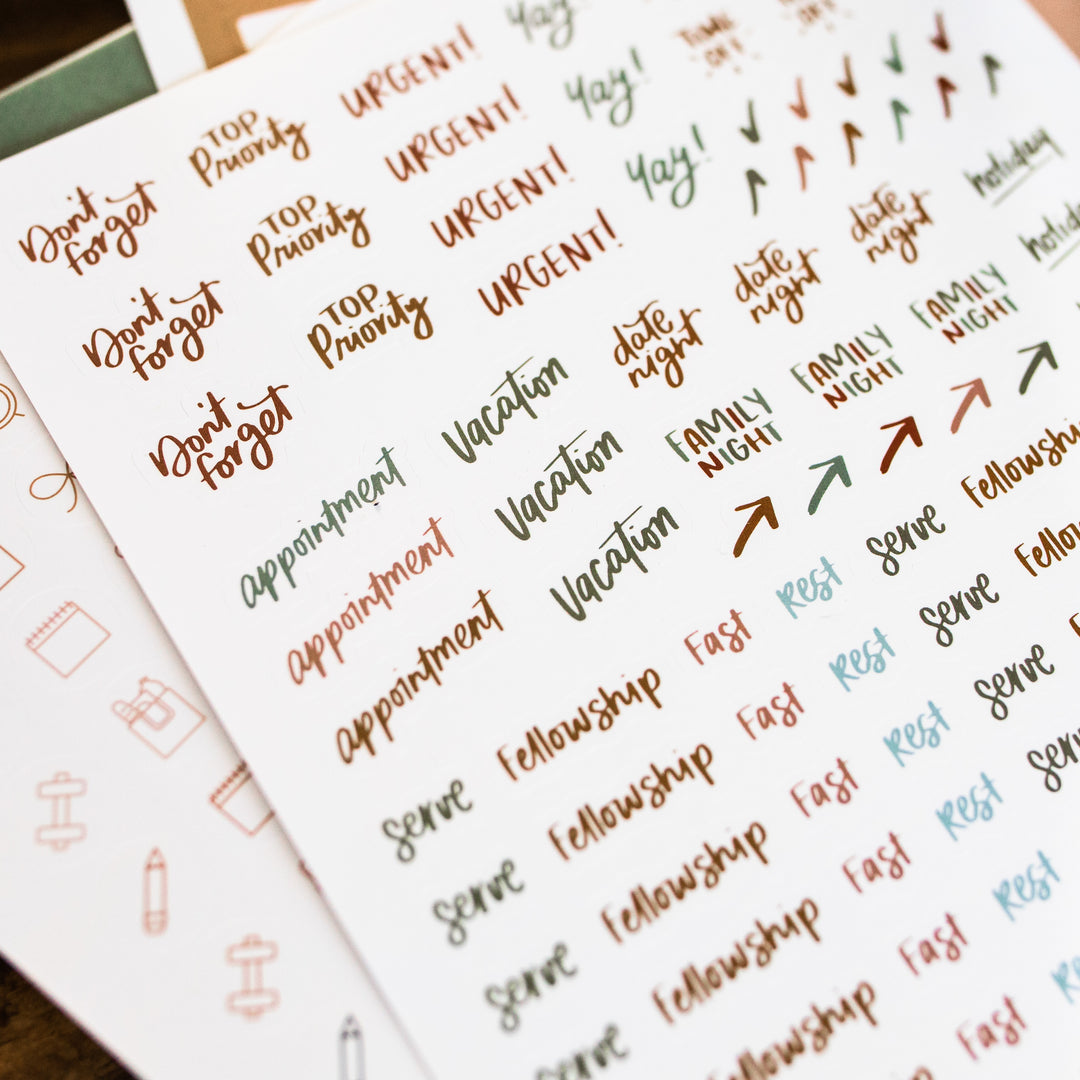 Yay!
TIME
OFF
URGENT!
Yay!
TOP
Priority
URGENT!
Yay!
holiday
Don't
forget
TOP
Priority
URGENT!
date
night
holiday
Don't
forget
TOP
Priority
URGENT!
date
night
FAMILY
NIGHT
Don't
forget
Vacation
date
night
FAMILY
NIGHT
appointment
Vacation
FAMILY
NIGHT
appointment
Vacation
appointment
serve
Fellowship
Fast
Rest
serve
Fellowship
serve
Fellowship
Fast
Rest
serve
Fellowship
serve
Fellowship
Fast
Rest
serve
serve
Fellowship
Fast
Rest
serve
Fellowship
Fast
Rest
Fast